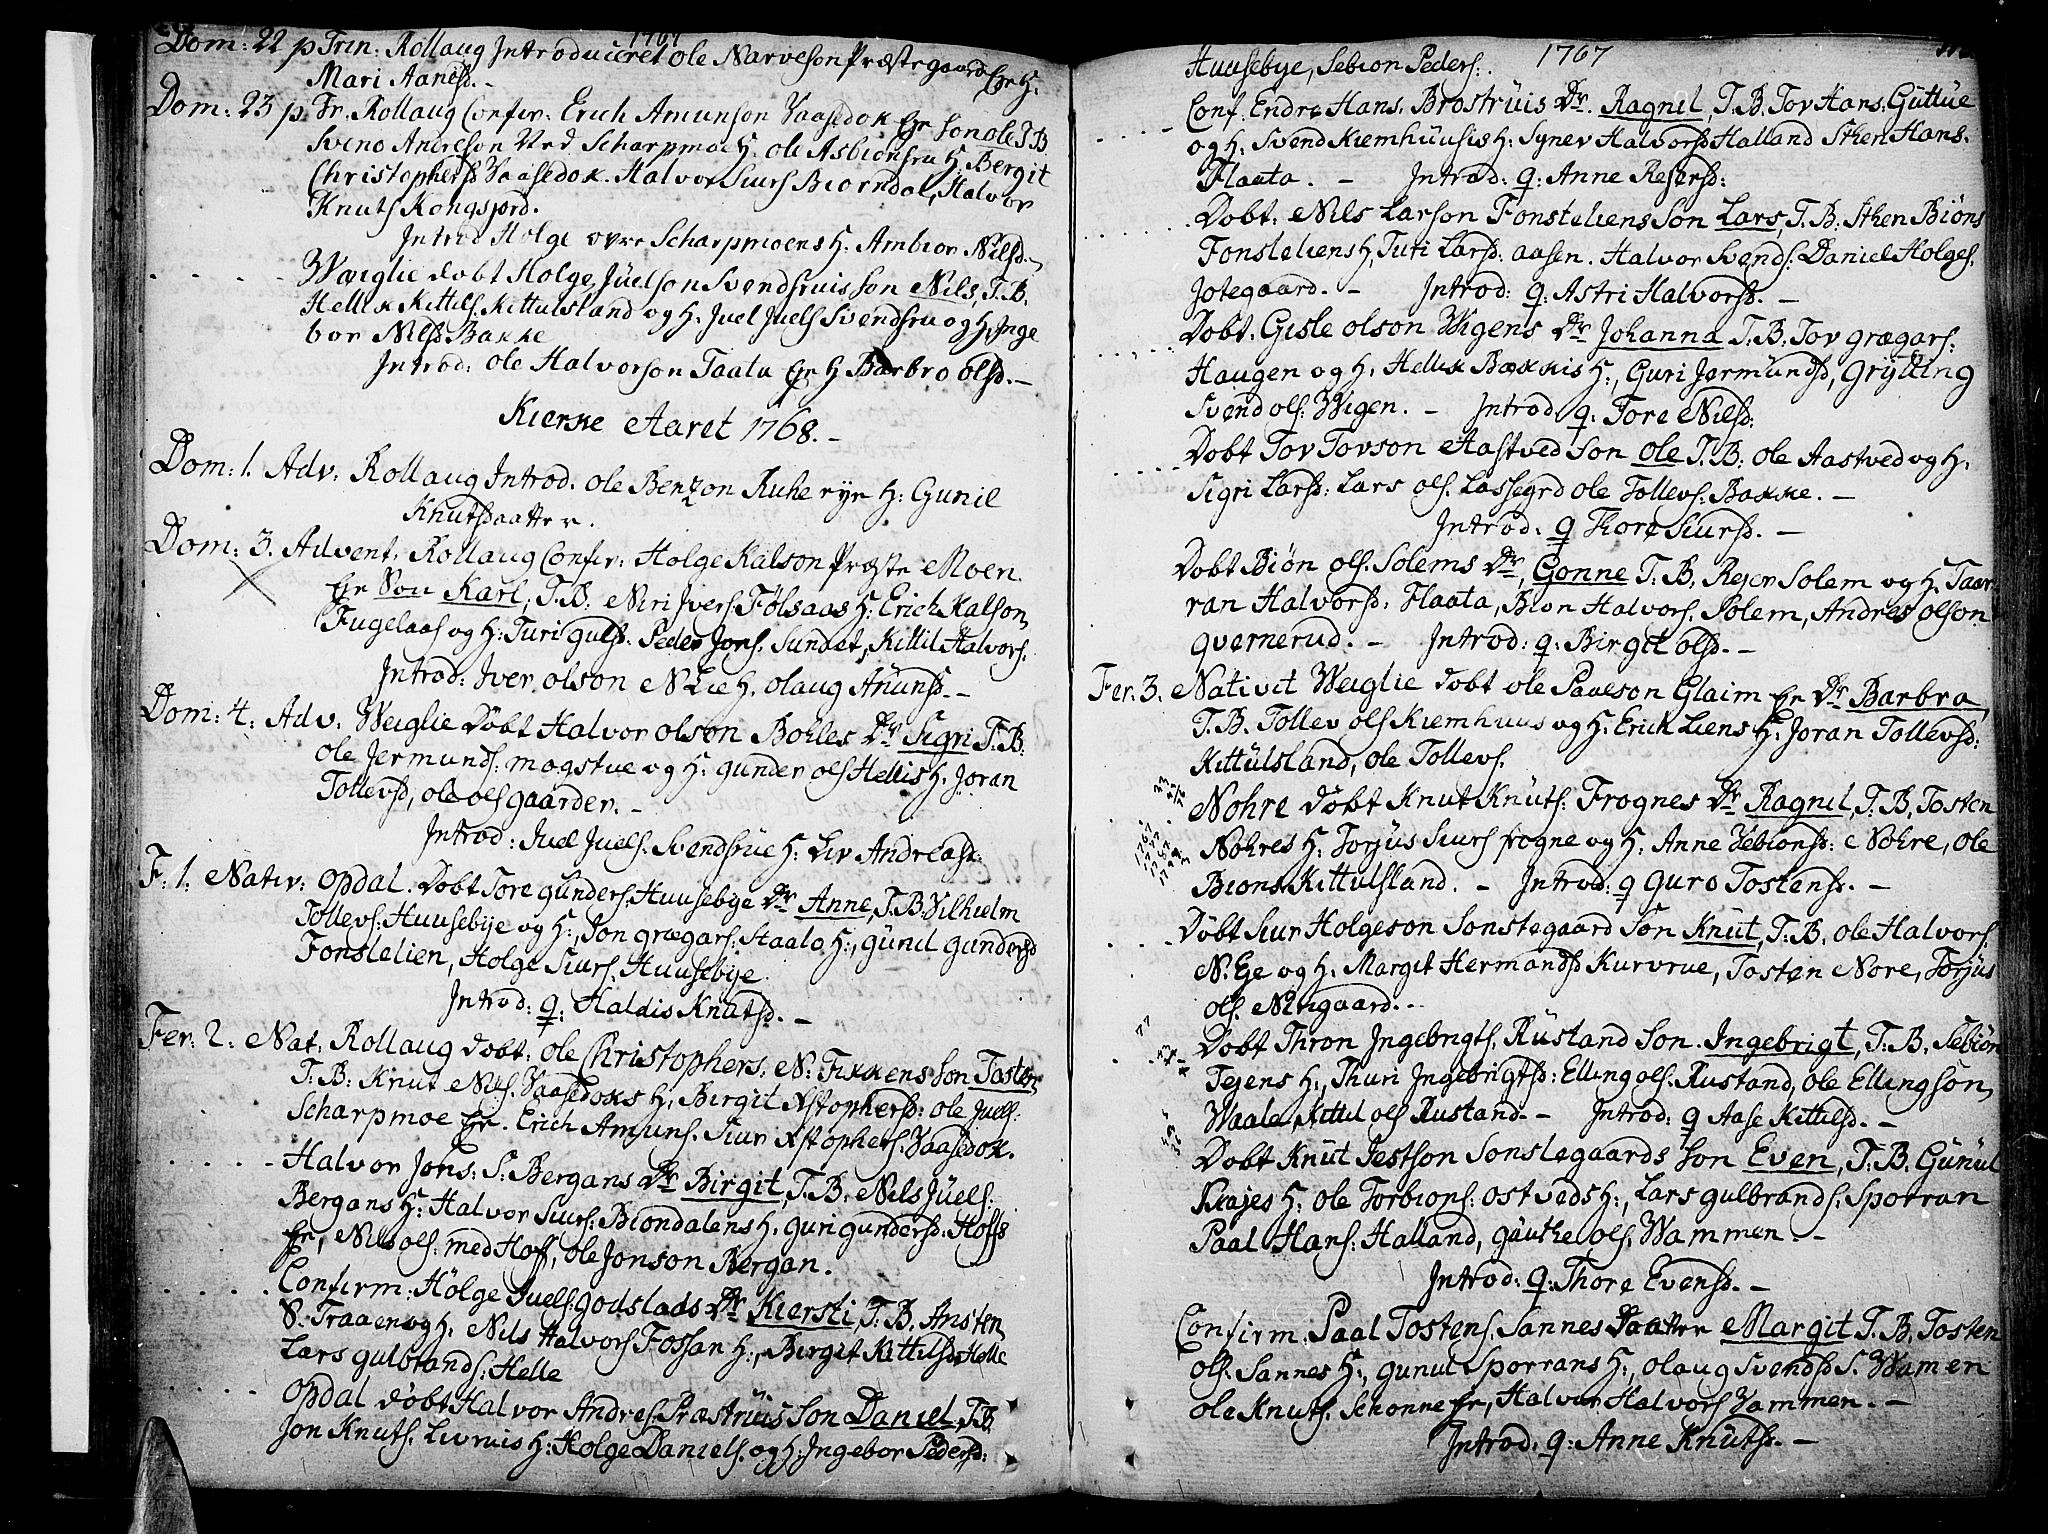 1767
Dom: 22 p Trin: Rollaug Introduceret ole Narveson Præstegaard Eje H.
Mari Aanesd. -
Dom: 23 p Tr. Rollaug Confir: Erich Amunson Vaasedok Eje son ole T.B
Sveno Andreson Ned Scharpmoe H: ole Asbionsru H. Bergit
Christophersd Vaasedok. Halvor Siurs Biorndal, Halvor
Knuts Kongsjord.
Introd Holge øvre Scharpmoens H: Ambior Nilsd. -
Wæglie døbt Holge Jüelson Svendsruis Son Nils, T.B.
Helle Kittils. Kittulsland og H. Juel Juels Svendsru og H. Inge
bor Nilsd Bakke
Introd: ole Halvorson Taata Eje H Barbro olsd. -
Kierke Aaret 1768. -
Dom: 1. Adv: Rollaug Introd. ole Benzon Ruhe eje H: Gunil
Knutsdaatter.
Dom: 3. Advent. Rollaug Confir: Holge Kalson Præste Moen.
Eje Son Karl, T.B. Niri Ivers. Følsaas H: Erich Kalson
Fugelaas og H: Turi gulsd. Peder Jons. Sundet, Kittil Halvors.
Introd: Iver olson N Lie H. olaug Anunsd. -
Dom: 4: Adv: Weiglie Døbt Halvor olson Bohles Dr Sigri T.B.
ole Jermunds: mogstue og H: gunder ols Hellis H. Joran
Tollevsd, ole ols gaarder. -
Introd: Juel Juels. Svendsrüe H: Liv Andreasd:
F: 1: Nativ: opdal. Døbt Tore gunders. Huusebye Dr Anne, T.B. Vilhielm
Tollevs. Huusebye og H:, Jon grægars: Staalo H:, gunil gundersd
Fonslelien, Holge Siurs. Huusebye
Introd: q: Haldis Knutsd. -
Fer: 2: Nat: Rollaug døbt: ole Christophers: N: Fikkens Son Tosten
T.B: Knut Nils. Vaasedoks H, Birgit Xstophersd: ole Juels:
Scharpmoe Eje. Erich Amuns. Siur Xstophers. Vaasedok.
Halvor Jons: S: Bergans Dr Birgit, T.B: Nils Jüels:
Bergans H: Halvor Siurs: Biondalens H. guri gundersd: Hoffs
Eje, Nils ols: med Hoff, ole Jonson Bergan.
Confirm: Hölge Juels: godslads Dr Kiersti, T.B. Ansten
S. Traaen og H. Nils Halvors Fossan H:, Birgit Kittilsd. Helle
Lars gulbrands: Helle
opdal døbt Halvor Andres. Præstrüis Son Daniel, T.B
Jon Knuts. Livruis H: Holge Daniels. og H: Ingebor Pedersd:
1767
Huusebye, Sebion Peders:
Conf. Endre Hans. Brostrüis Dr. Ragnil, T.B. Tov Hans. Guttüe
og H. Svend Kiemhüusis H: Synev Halvorsd Halland Sthen Hans.
Flaata. - Introd: q: Anne Resersd:
Døbt. Nils Larson Fonsteliens Son Lars, T.B: Sthen Biøns
Fonsteliens H, Turi Larsd. aasen. Halvor Svends: Daniel Holges.
Jotegaard. - Introd: q: Astri Halvorsd. -
Døbt. Gisle olson Wigens Dr Johanna T.B. Tov grægars:
Haugen og H. Helle Bakkis H:, Guri Jermundsd, Grylling
Svend ols. Wigen. - Introd. q: Tore Nilsd:
Døbt Tov Tovson Aastved Son ole T.B: ole Aastved og H.
Sigri Larsd: Lars ols. Lassegrd ole Tollevs. Bakke. -
Introd: q Thore Siursd. -
Døbt Biøn ols. Solems Dr, Gonne T.B. Rejer Solem og H. Taar
ran Halvorsd: Flaata, Bion Halvors: Solem, Andres olson
qvernerud. - Introd: q: Birgit olsd. -
Fer: 3. Nativit Weiglie døbt ole Paaeson Glaim Eje Dr Barbra,
T.B. Tollev ols Kiemhuus og H: Erick Liens H: Joran Tollevsd:
Kittülsland, ole Tollevs.
Nohre døbt Knut Knuts: Frognes Dr Ragnil, T.B, Tosten
Nohres H: Torjus Siurs frogne og H: Anne Sebionsd: Nohre, ole
Bions Kittulsland. - Introd: q Guro Tostensd. -
Døbt Siur Holgeson Sonstegaard Son Knut, T.B. ole Halvors.
N. Eje og H. Margit Hermandsd Kurvrue, Tosten Nore, Torjus
ols. Nirgaard. -
Døbt Thron Ingebrigts. Rüstand Son. Ingebrigt, T.B. Sebiøn
Tejens H:, Thuri Ingebrigtsd: Elling ols. Rustand, ole Ellingson,
Waale Kittil ols Rustand. - Introd: q Aase Kittilsd. -
Døbt Knut Testson Sonslegaards Son Even, T.B. Gunül
Krajes H: ole Torbions: ostveds H:, Lars gulbrands. Sporran
Paal Hans: Halland, Gäuthe ols. Wammen. -
Introd: q: Thore Evensd. -
Confirm. Paal Tostens. Sannes Daatter Margit T.B. Tosten
ols. Sannes H:, gunul Sporrans H:, olaug Svendsd S. Wamen
ole Knuts. Schonne Eje, Halvor Halvors Vammen. -
Introd: q: Anne Knutsd. -